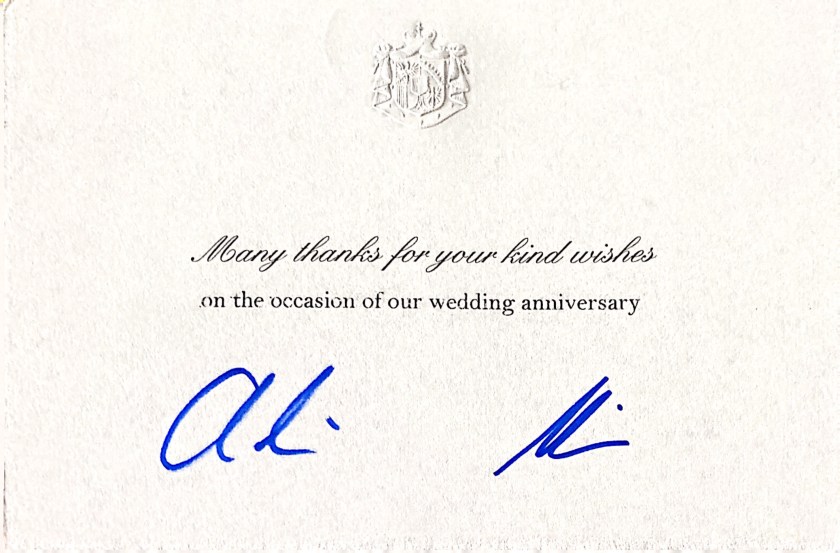 Many thanks for your kind wishes
on the occasion of our wedding anniversary